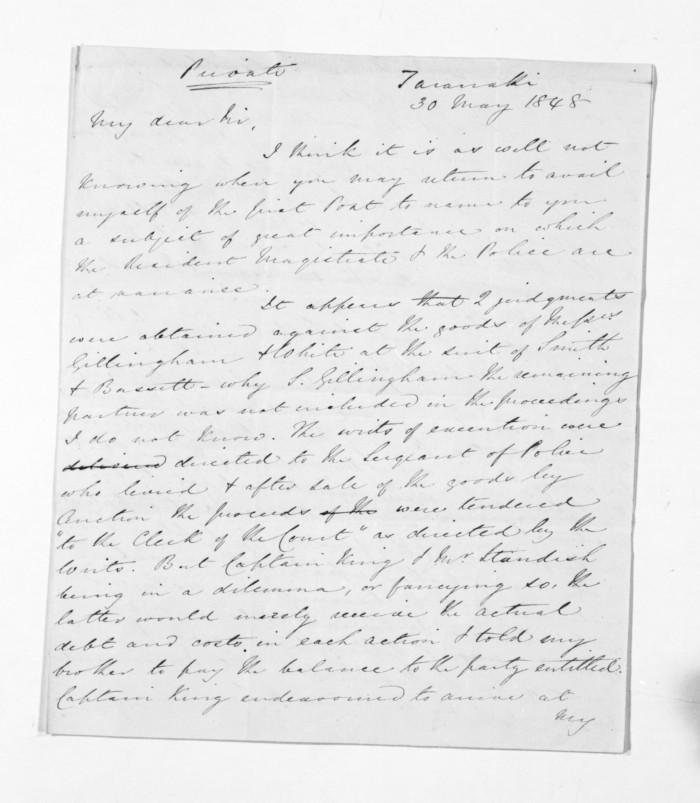 Private
Taranaki
30 May 1848
My dear Sir,
I think it is as well not
knowing when you may return to avail
myself of the first Post to name to you
a subject of great importance on which
the Resident Magistrate & the Police are
at variance.
It appears that 2 judgments
were obtained against the goods of Messrs
Gillingham & White at the suit of Smith
& Bassett - why S. Gillingham the remaining
partner was not included in the proceedings
I do not know. The writs of execution were
directed to the Sergeant of Police
who levied & after sale of the goods by
Auction the proceeds of the were tendered
"to the Clerk of the Court" as directed by the
writs. But Captain King & Mr Standish
being in a dilemma, or fancying so, the
latter would merely receive the actual
debt and costs in each action & told my
brother to pay the balance to the party entitled.
Captain King endeavoured to arrive at
my